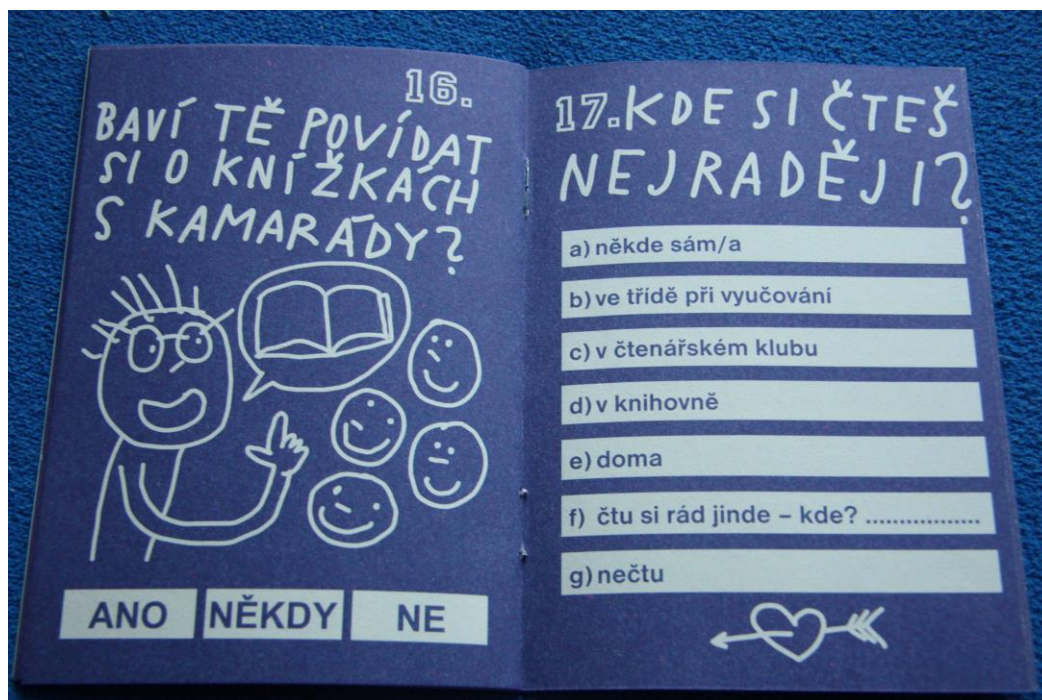 16.
BAVÍ TĚ POVÍDAT
SI O KNÍŽKÁCH
S KAMARÁDY?
ANO NĚKDY NE
17. KDE SI ČTEŠ
NEJRADĚJI?
a) někde sám/a
b) ve třídě při vyučování
c) v čtenářském klubu
d) v knihovně
e) doma
f) čtu si rád jinde – kde? .................
g) nečtu